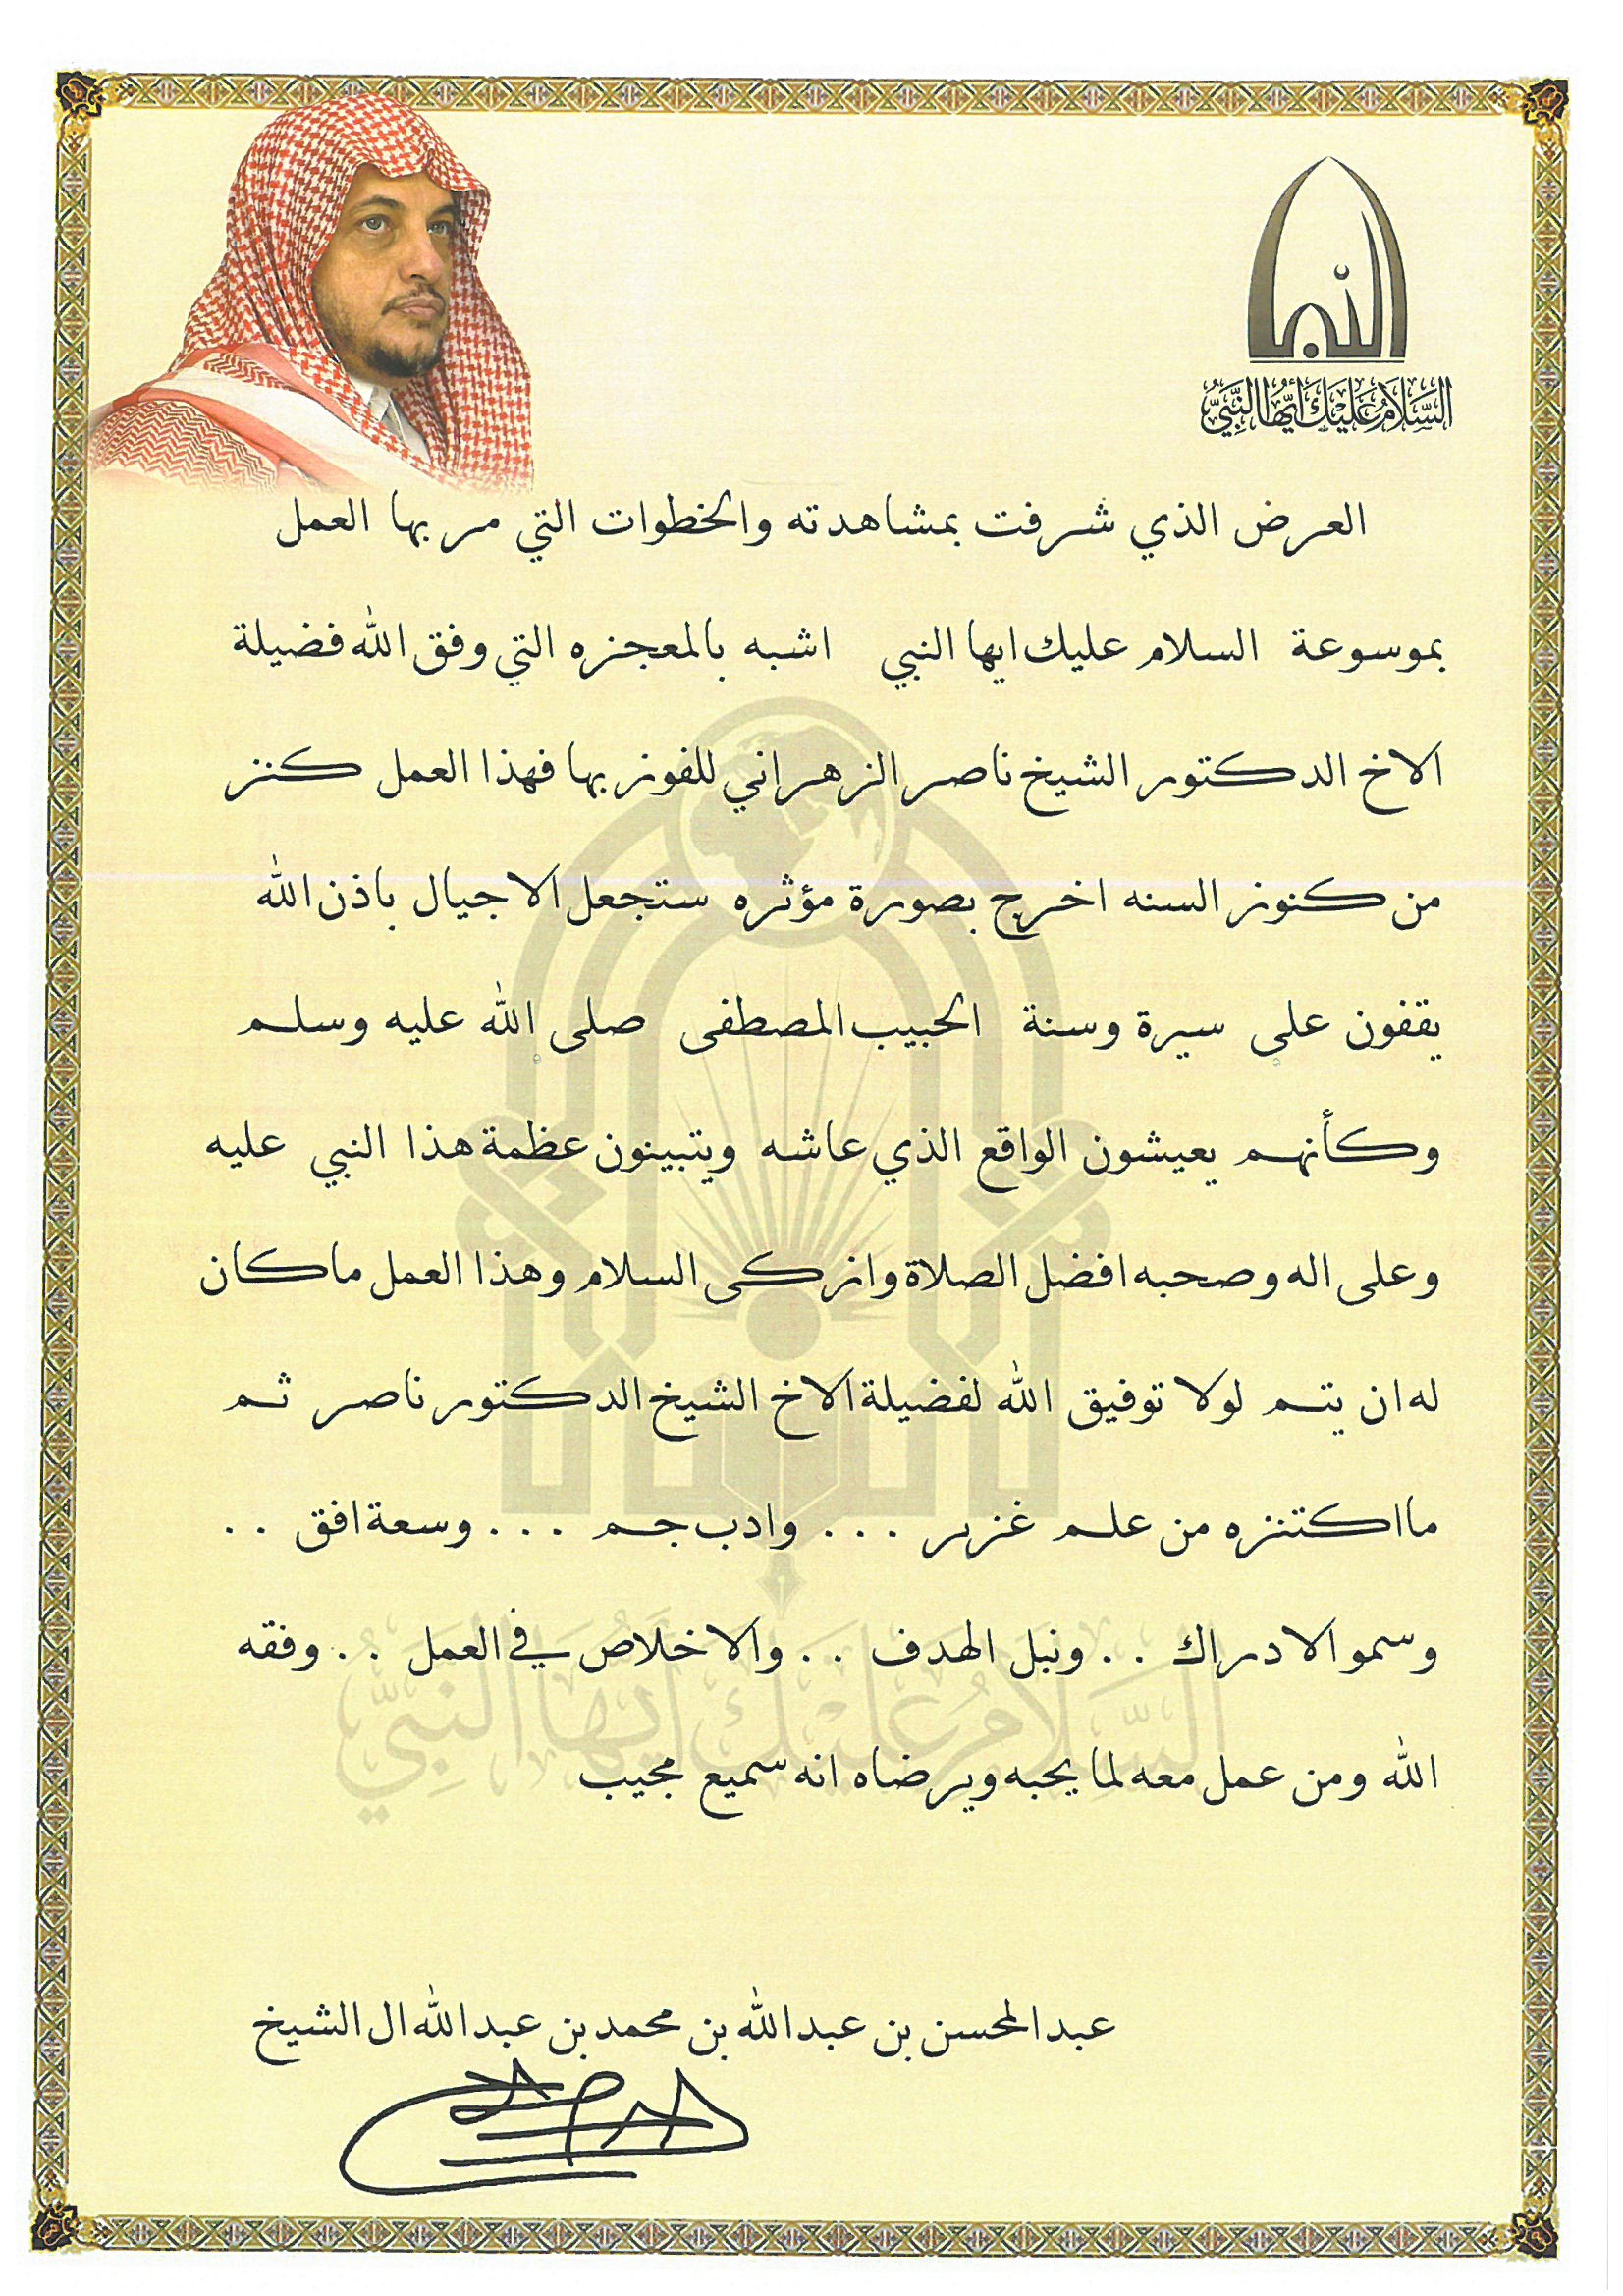 السَّلَامُ عَلَيْكَ أَيُّهَا النَّبِيُّ
العرض الذي شرفت بمشاهدته والخطوات التي مر بها العمل
بموسوعة السلام عليك ايها النبي اشبه بالمعجزه التي وفق الله فضيلة
الاخ الدكتور الشيخ ناصر الزهراني للفوز بها فهذا العمل كنز
من كنوز السنه اخرج بصورة مؤثره ستجعل الاجيال باذن الله
يقفون على سيرة وسنة الحبيب المصطفى صلى الله عليه وسلم
وكأنهم يعيشون الواقع الذي عاشه ويتبينون عظمة هذا النبي عليه
وعلى اله وصحبه افضل الصلاة وازكى السلام وهذا العمل ماكان
له ان يتم لولا توفيق الله لفضيلة الاخ الشيخ الدكتور ناصر ثم
مااكتنزه من علم غزير ... وادب جم ... وسعة افق ..
وسمو الادراك .. ونبل الهدف .. والاخلاص في العمل .. وفقه
الله ومن عمل معه لما يحبه ويرضاه انه سميع مجيب
السَّلَامُ عَلَيْكَ أَيُّهَا النَّبِيُّ
عبدالمحسن بن عبدالله بن محمد بن عبدالله ال الشيخ